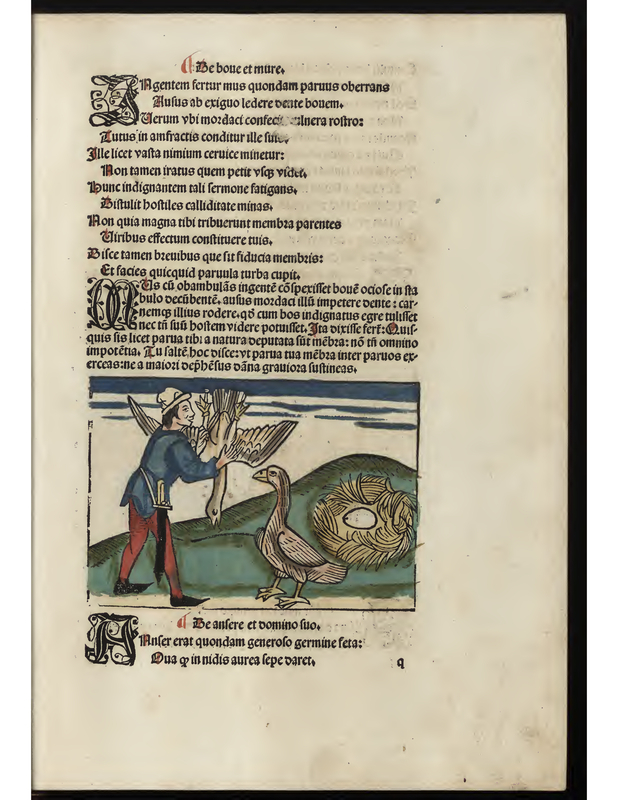 De boue et mure.
INgentem fertur mus quondam paruus oberrans
Ausus ab exiguo ledere dente bouem.
Uerum vbi mordaci confecit vulnera rostro:
Tutus in amfractis conditur ille suis.
Ille licet vasta nimium ceruice minetur:
Non tamen iratus quem petit vsq; videt.
Hunc indignantem tali sermone fatigans.
Distulit hostiles calliditate minas.
Non quia magna tibi tribuerunt membra parentes
Uiribus effectum constituere tuis.
Disce tamen breuibus que sit fiducia membris:
Et facies quicquid paruula turba cupit.
MUs cū obambulās ingentē cōspexisset bouē ociose in sta
bulo decūbentē. ausus mordaci illū impetere dente: car-
nemq; illius rodere. qd cum bos indignatus egre tulisset
nec tn̄ suū hostem videre potuisset. Ita dixisse fert: Quis-
quis sis licet parua tibi a natura deputata sūt mēbra: nō tn̄ omnino
impotētia. Tu saltē hoc disce: vt parua tua mēbra inter paruos ex-
erceas: ne a maiori dephēsus dāna grauiora sustineas.
De ansere et domino suo.
ANser erat quondam generoso germine feta:
Oua q; in nidis aurea sepe daret.
q